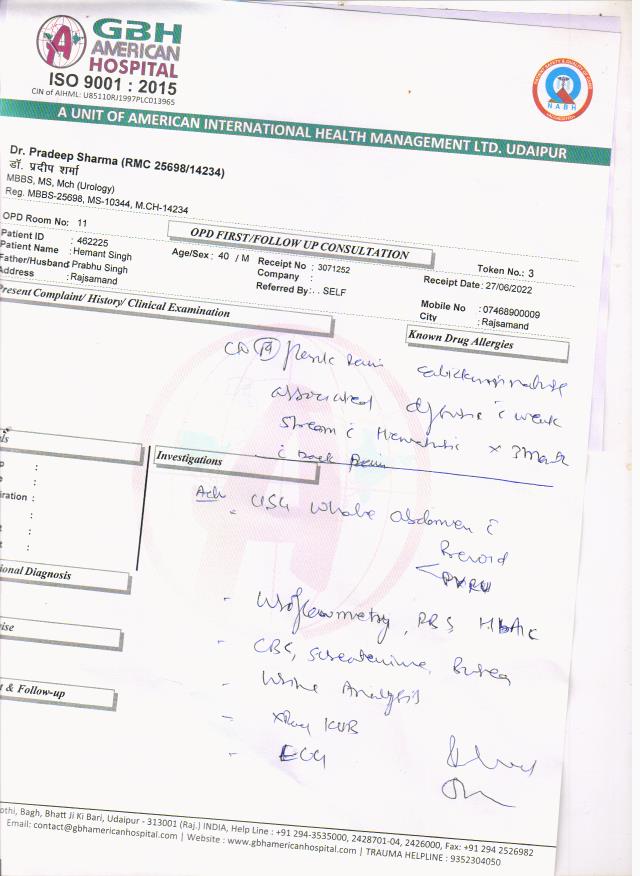 GBH
AMERICAN
HOSPITAL
ISO 9001 : 2015
CIN of AIHML: U85110RJ1997PLC013965
NABH
A UNIT OF AMERICAN INTERNATIONAL HEALTH MANAGEMENT LTD. UDAIPUR
Dr. Pradeep Sharma (RMC 25698/14234)
डॉ. प्रदीप शर्मा
MBBS, MS, Mch (Urology)
Reg. MBBS-25698, MS-10344, M.CH-14234
OPD Room No: 11
OPD FIRST/FOLLOW UP CONSULTATION
Token No.: 3
Patient ID : 462225
Age/Sex : 40 / M
Receipt No : 3071252
Receipt Date : 27/06/2022
Patient Name : Hemant Singh
Company :
Father/Husband Prabhu Singh
Referred By: . SELF
Mobile No : 07468900009
Address : Rajsamand
City : Rajsamand
Present Complaint/ History/ Clinical Examination
Known Drug Allergies
associated
weak
stream c̄ Hematuria x 3
c̄ back pain
Investigations
Adv
- USG whole abdomen c̄
Prevoid
PVRU
- Uroflowmetry, RBS, HbA1c
- CBC,
- Urine Analysis
- XRay KUB
- ECG
iration :
ional Diagnosis
ise
t & Follow-up
othi, Bagh, Bhatt Ji Ki Bari, Udaipur - 313001 (Raj.) INDIA, Help Line : +91 294-3535000, 2428701-04, 2426000, Fax: +91 294 2526982
Email: contact@gbhamericanhospital.com | Website : www.gbhamericanhospital.com | TRAUMA HELPLINE : 9352304050